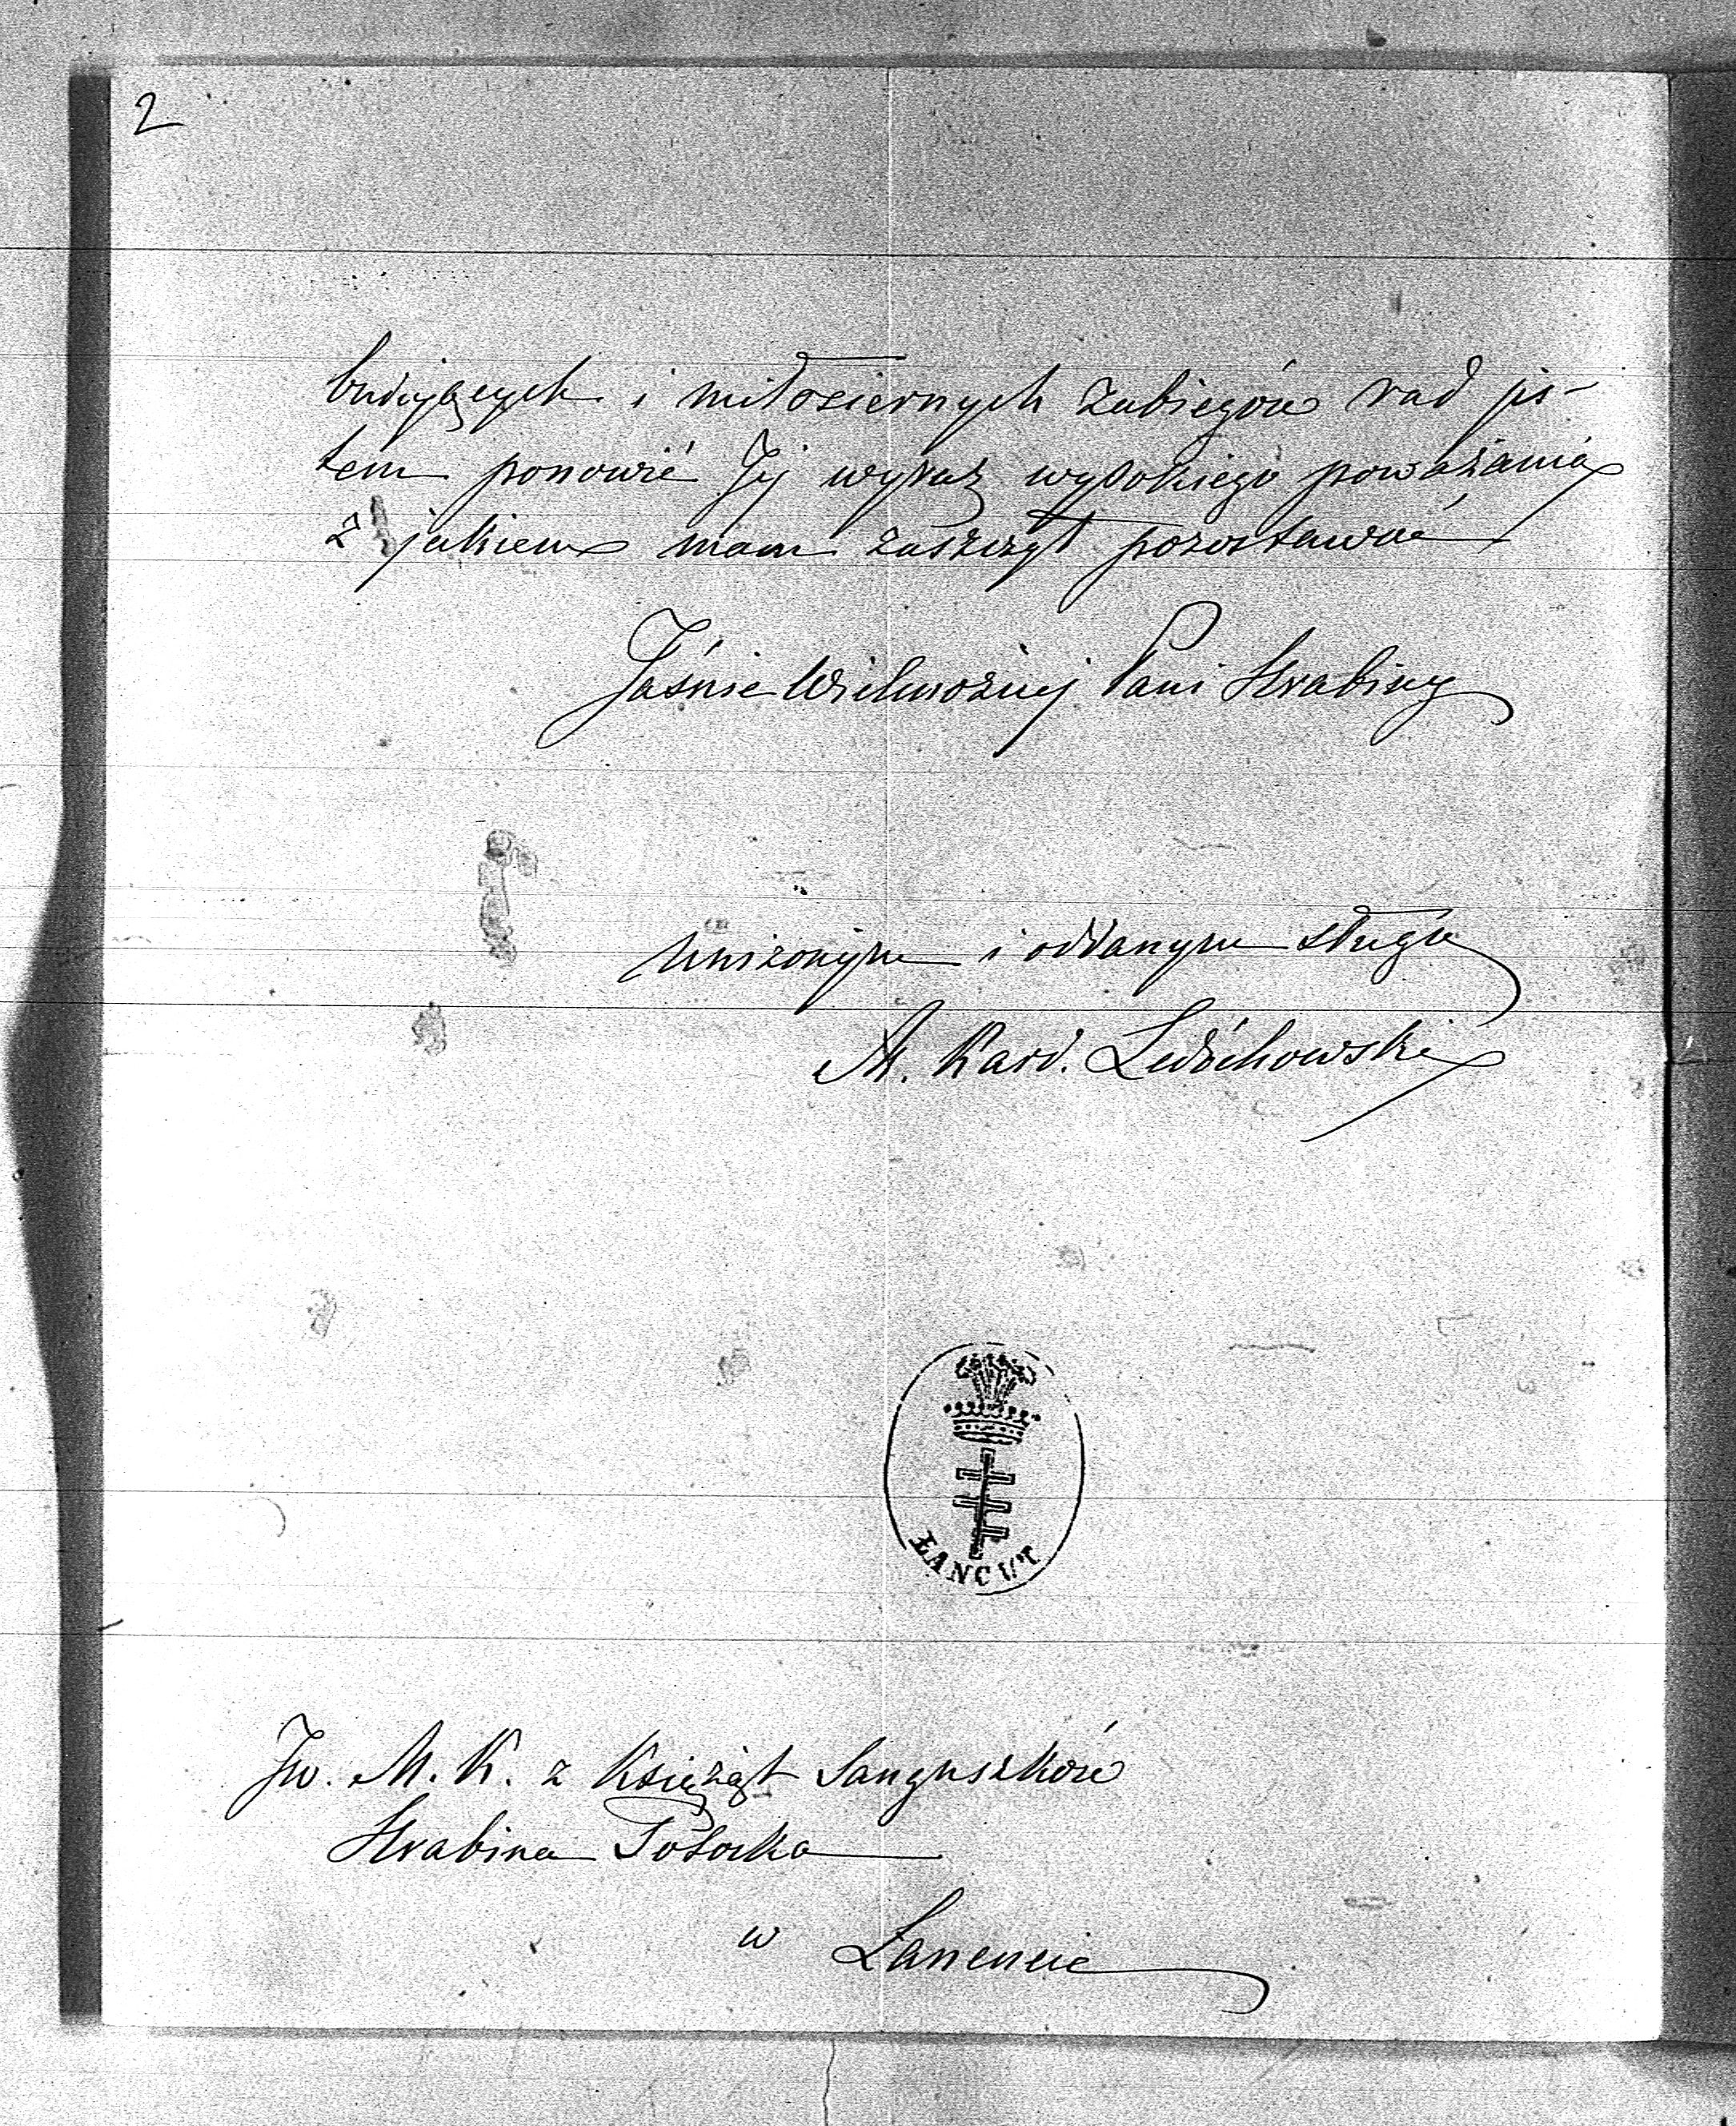 2
budujących i miłosiernych zabiegów rad jes-
tem ponowić Jej wyraz wysokiego poważania
z jakiem mam zaszczyt pozostawać
Jaśnie Wielmożnej Pani Hrabiny
uniżonym i oddanym sługą
M. Kard. Ledóchowski
ŁANCUT
Jw. M. K. z Książąt Sanguszków
Hrabina Potocka
w Łancucie